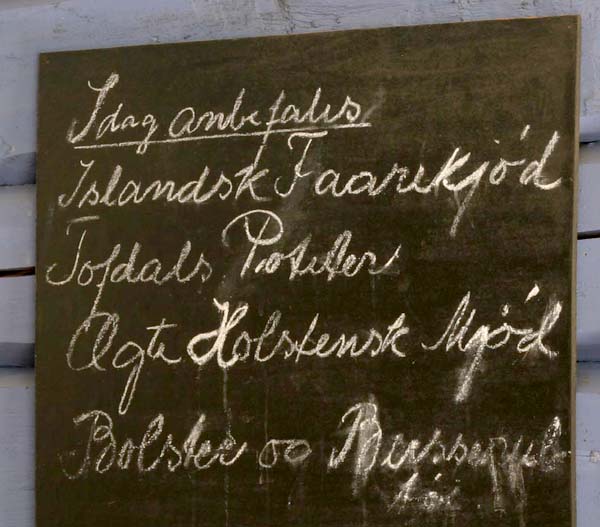 Idag anbefales
Islandsk Faarekjød
Tofdals Poteter
Ægte Holstensk Mjød
Bolster og